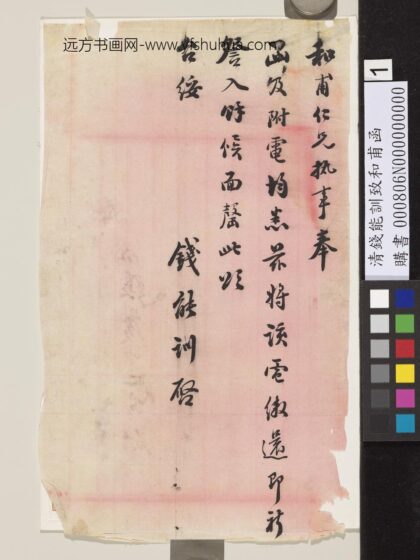 远方书画网-www.yfshuhua.com
和甫仁兄执事奉
函及附電均悉茲將該電繳還即祈
詧入時候面罄此頌
台绥
錢能訓啓
1
清錢能訓致和甫函
購書 000806N000000000